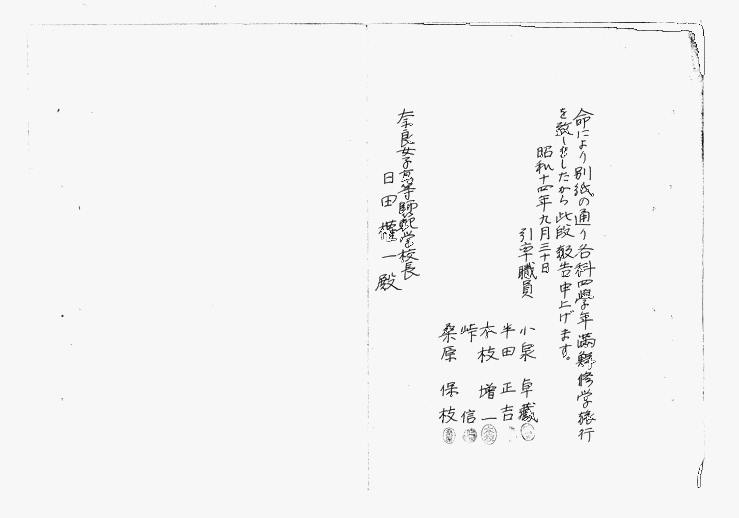 命により別紙の通り各科四學年満鮮修学旅行
を致しましたから此段報告申上げます。
昭和十四年九月三十日
引率職員
小泉卓蔵
半田正吉
木枝増一
峠信
桑原保枝
奈良女子高等師範学校長
日田權一殿